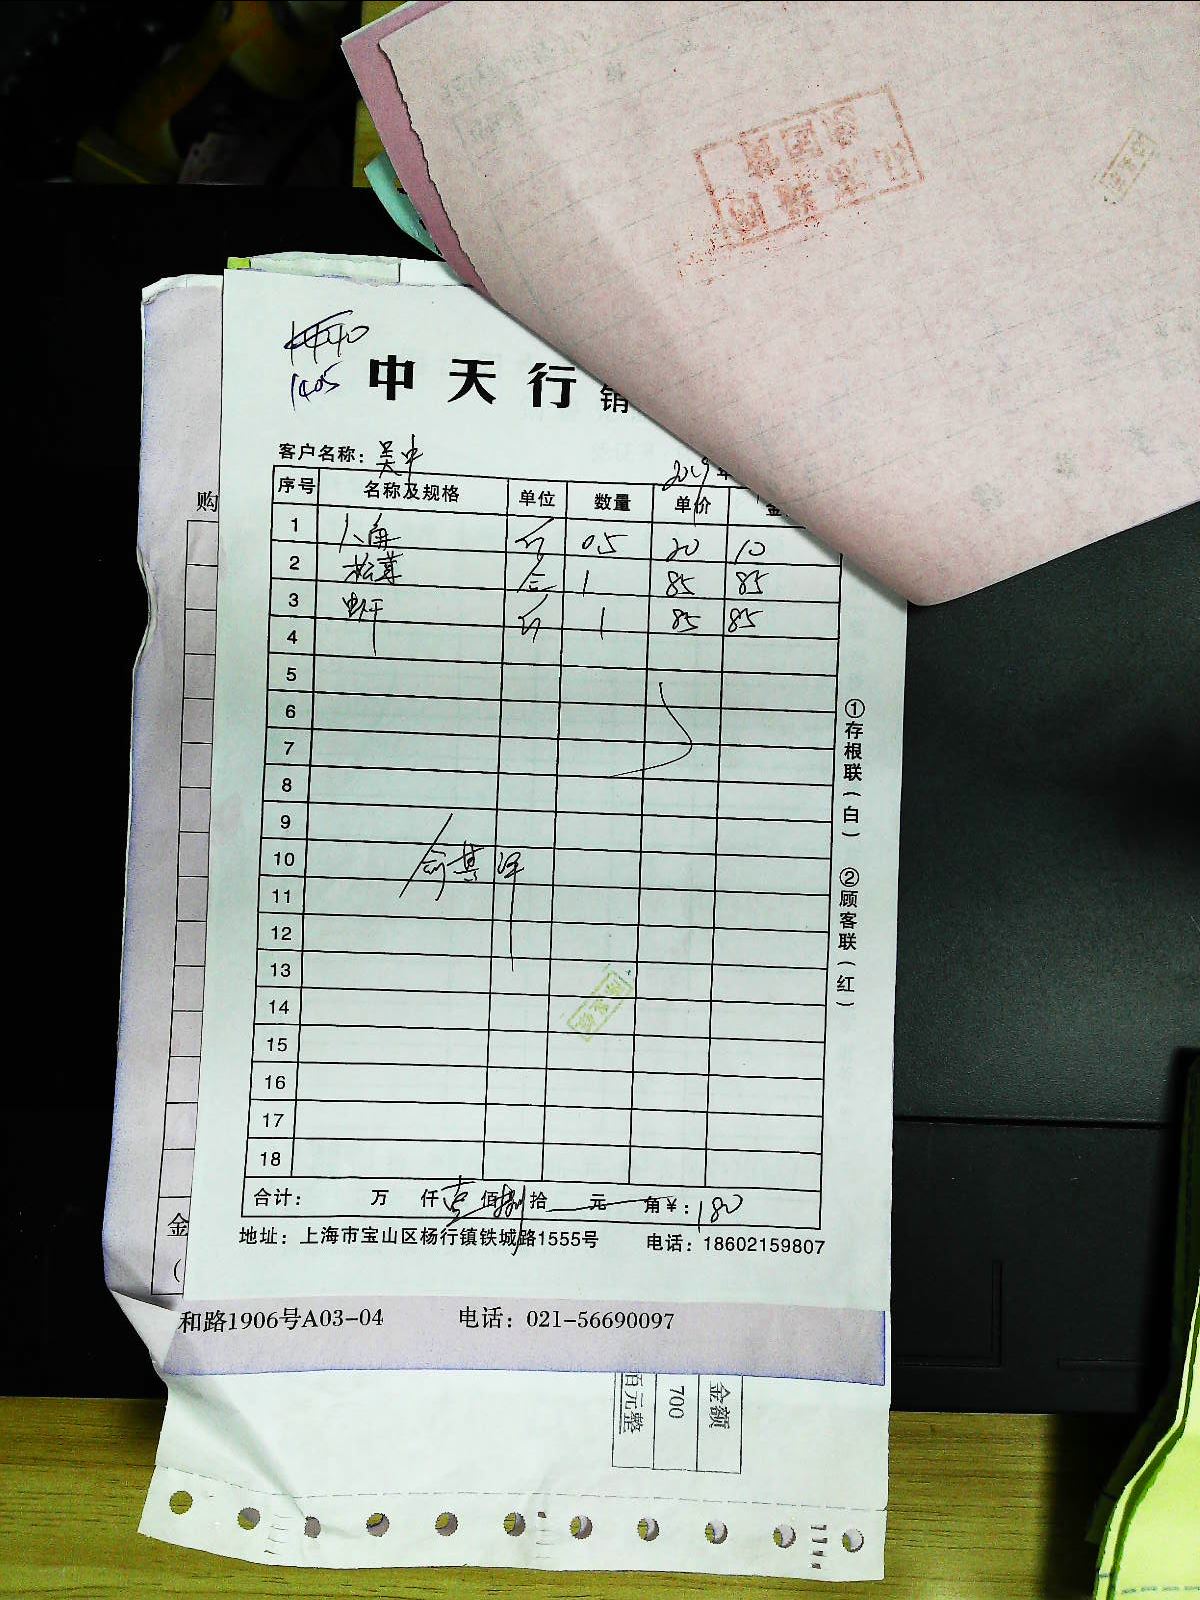 1405
中天行 销
客户名称: 吴中 2019年
序号 名称及规格 单位 数量 单价
1 八角 斤 0.5 20 10
2 松茸 盒 1 85 85
3 虾干 斤 1 85 85
4
5
6
7
8
9
10
11
12
13
14
15
16
17
18
合计: 万 仟 壹 佰 捌 拾 元 角 ¥: 180
地址: 上海市宝山区杨行镇铁城路1555号 电话: 18602159807
①存根联(白) ②顾客联(红)
购
金
(
和路1906号A03-04 电话: 021-56690097
金额
700
佰元整